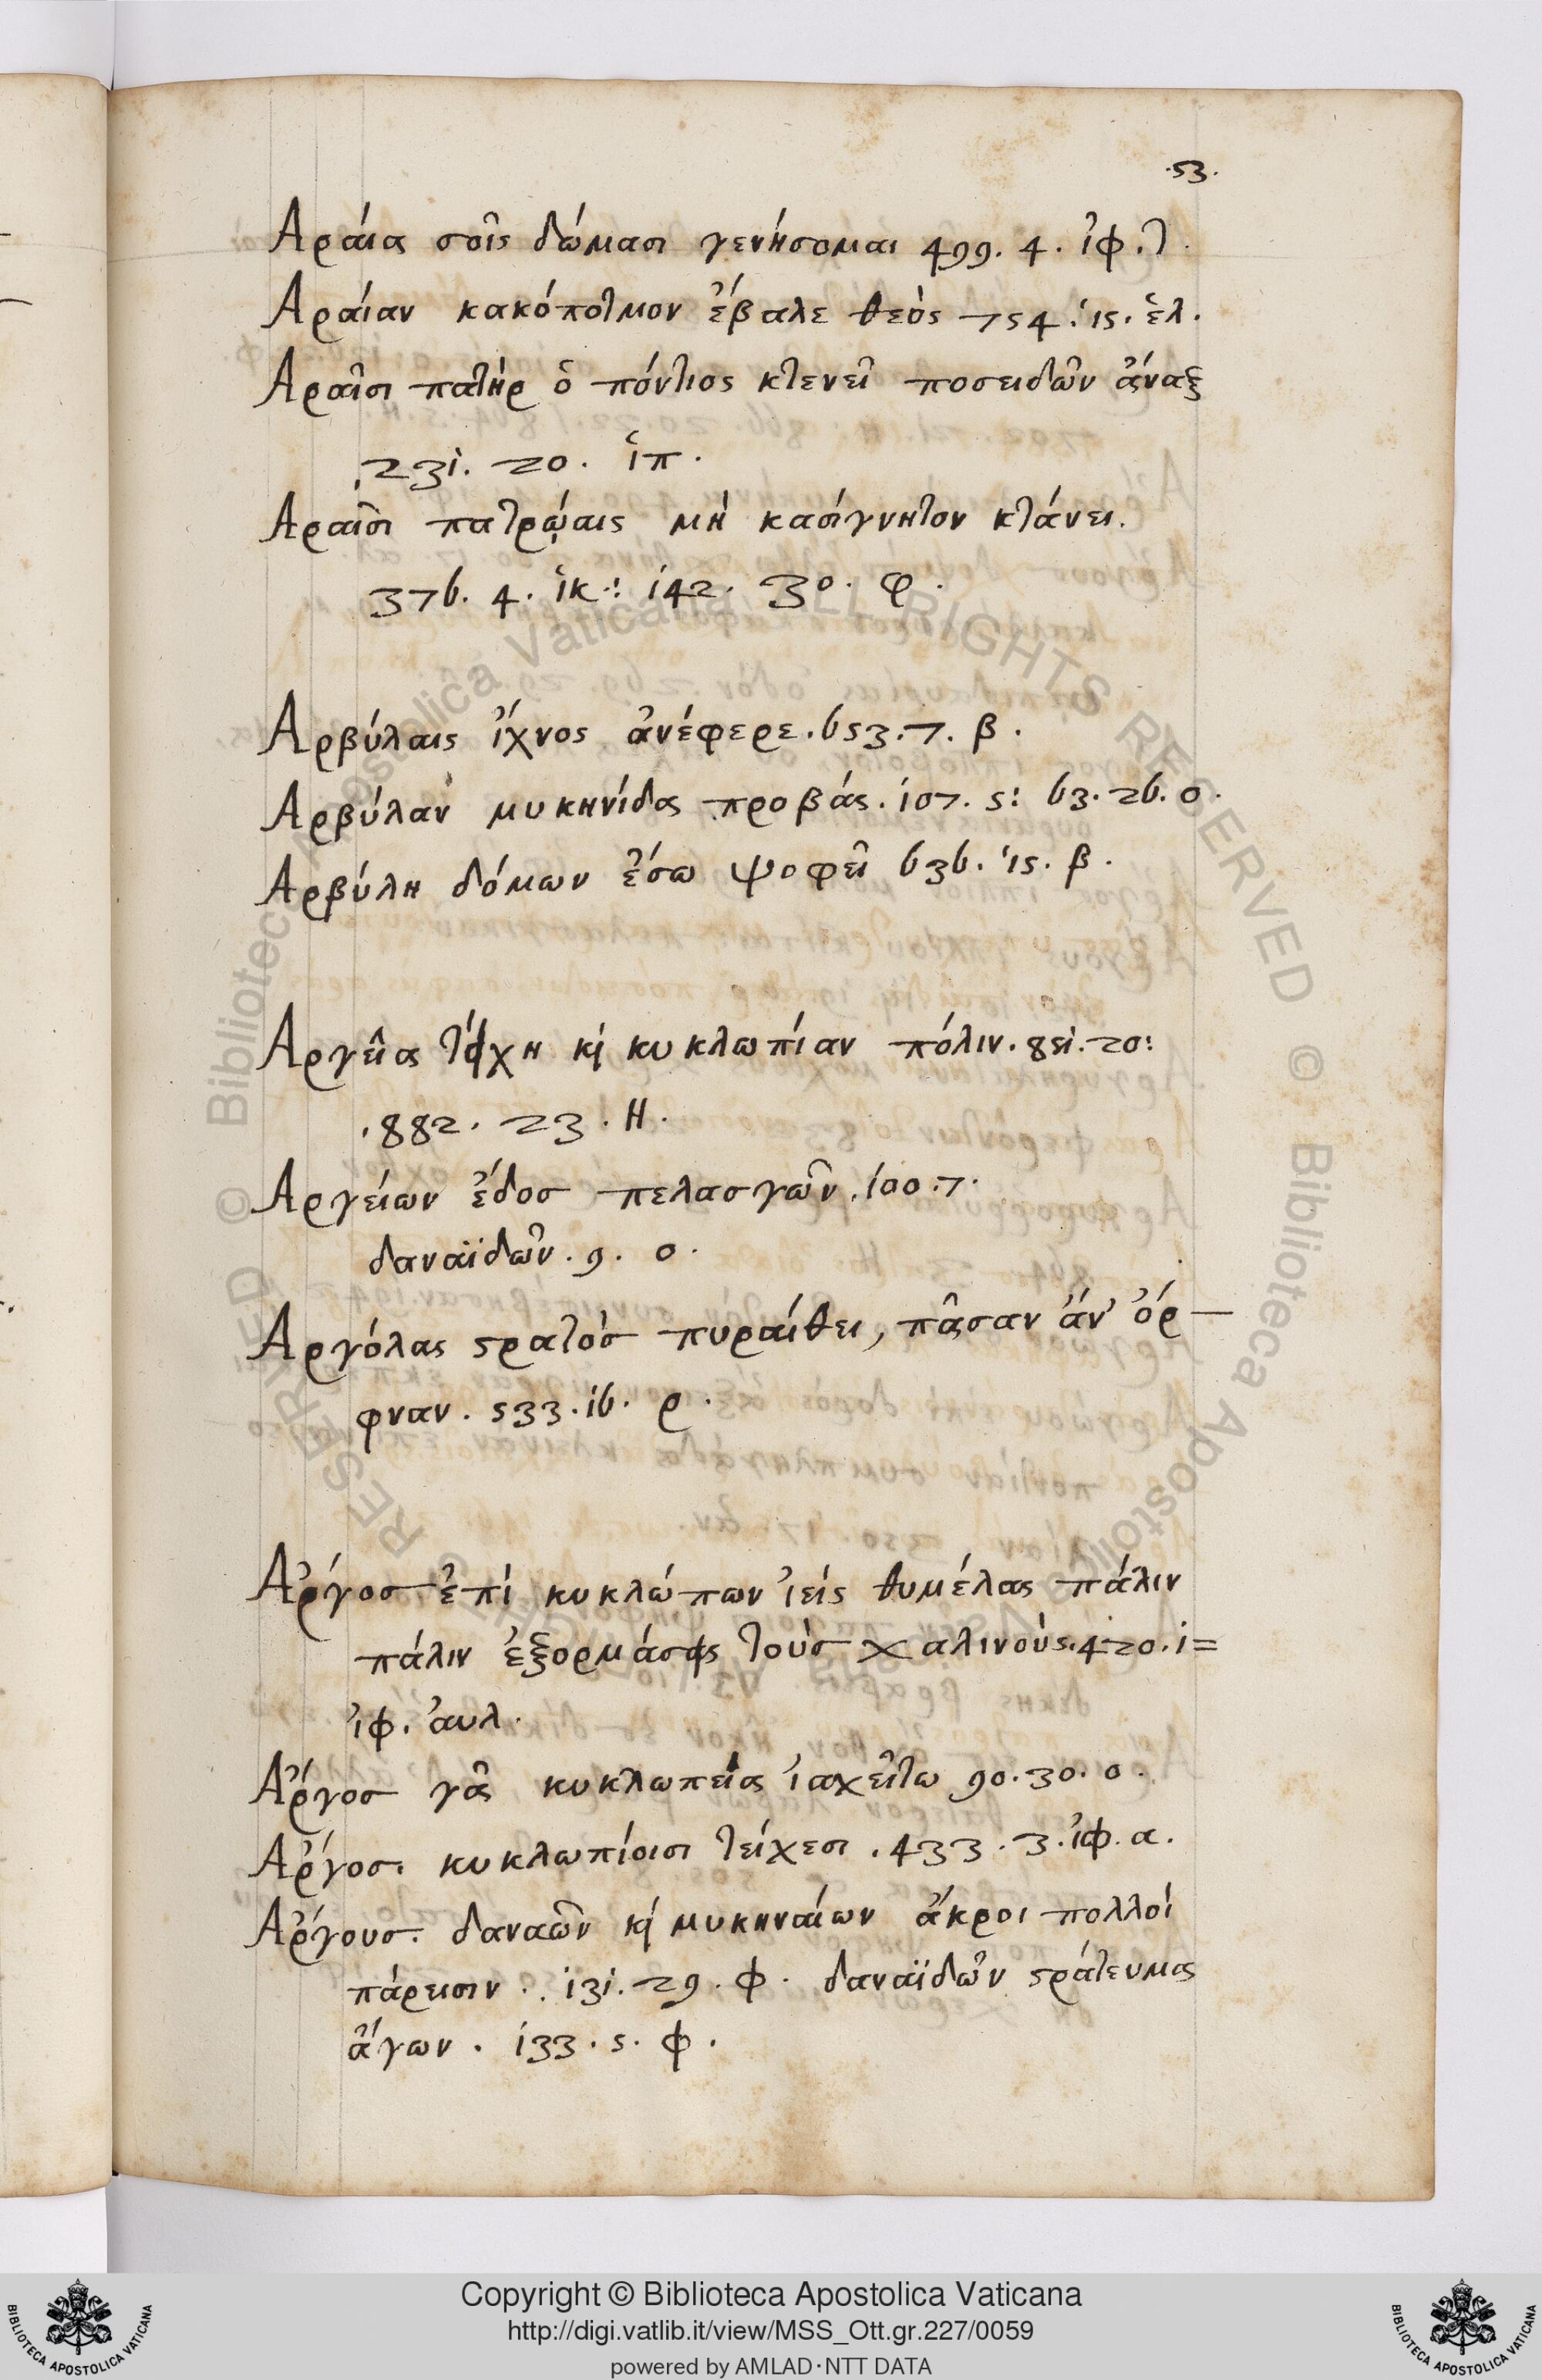 .53.
Αραία σοῖς δώμασι γενήσομαι 499. 4. ἰφ. τ.
Αραίαν κακόποτμον ἔβαλε θεὸς 754. 15. ἑλ.
Αραῖσι πατὴρ ὁ πόντιος κτενεῖ ποσειδῶν ἄναξ
231. 20. ἱπ.
Αραῖσι πατρῴαις μὴ κασίγνητον κτάνει.
376. 4. ἱκ: 142. 30. φ.
Αρβύλαις ἴχνος ἀνέφερε. 653. 7. β.
Αρβύλαν μυκηνίδα προβάς. 107. 5: 63. 26. ο.
Αρβύλη δόμων ἔσω ψοφεῖ 636. 15. β.
Αργεῖα τείχη κὶ κυκλωπίαν πόλιν. 851. 20:
.882. 23. Η.
Αργείων ἕδοσ πελασγῶν. 100. 7.
δαναϊδῶν. 9. ο.
Αργόλας στρατὸσ πυραίθει, πᾶσαν ἀν' ὄρ—
φναν. 533. 16. ρ.
Αργοσ ἐπὶ κυκλώπων ἱεὶς θυμέλας πάλιν
πάλιν ἐξορμάσῃς τοὺσ χαλινούς. 420. 1=
ἰφ. ἀυλ.
Αργοσ γᾶ κυκλωπεία ἰαχείτω 90. 30. ο.
Αργοσ. κυκλωπίοισι τείχεσι. 433. 3. ἰφ. α.
Αργουσ. δαναῶν κὶ μυκηναίων ἄκροι πολλοὶ
πάρεισιν. 131. 29. φ. δαναϊδῶν στράτευμα
ἄγων. 133. 5. φ.
© Biblioteca Apostolica Vaticana ALL RIGHTS RESERVED
© Biblioteca Apostolica Vaticana ALL RIGHTS RESERVED
Copyright © Biblioteca Apostolica Vaticana
http://digi.vatlib.it/view/MSS_Ott.gr.227/0059
powered by AMLAD·NTT DATA
BIBLIOTECA APOSTOLICA VATICANA
BIBLIOTECA APOSTOLICA VATICANA